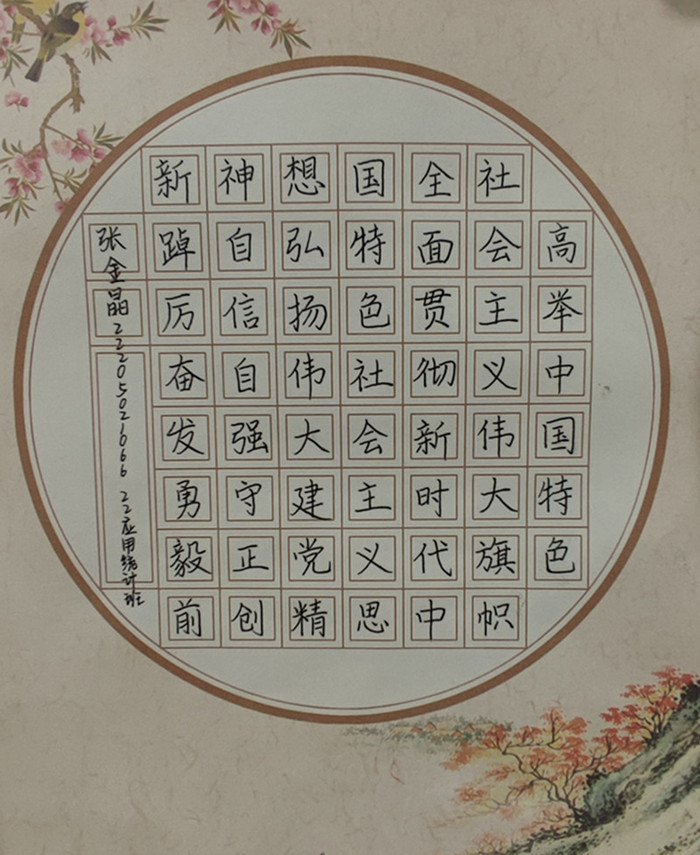 高举中国特色
社会主义伟大旗帜
全面贯彻新时代中
国特色社会主义思
想弘扬伟大建党精
神自信自强守正创
新踔厉奋发勇毅前
张金晶 22205021066 22应用统计班